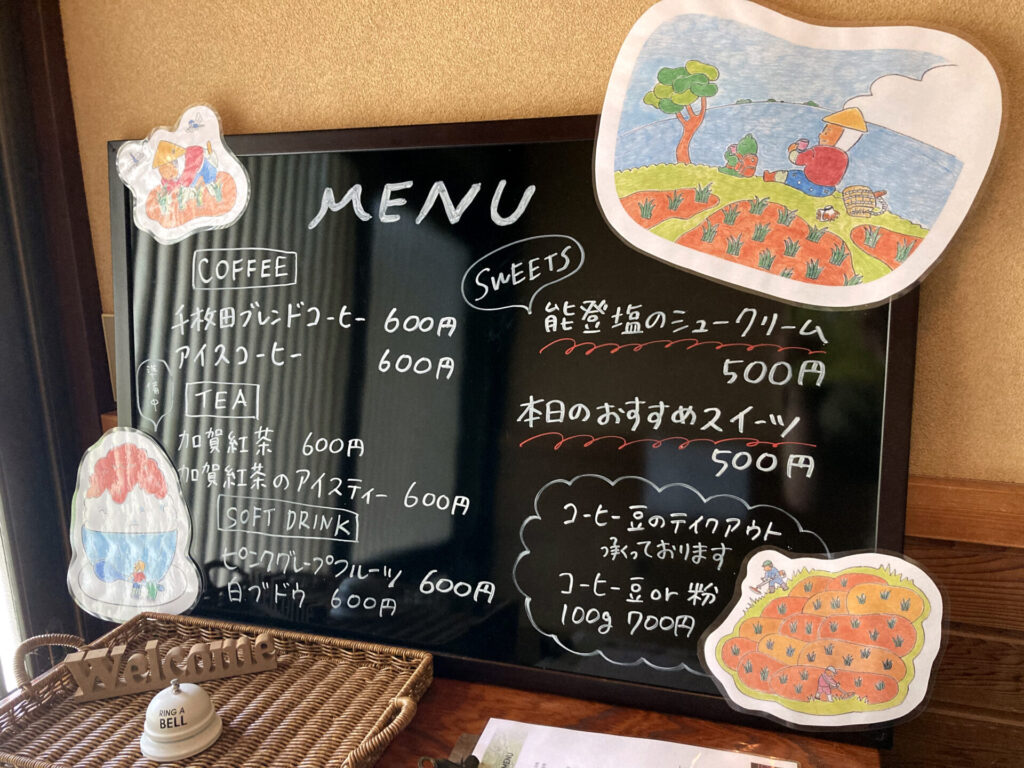 MENU
COFFEE
千枚田ブレンドコーヒー 600円
アイスコーヒー 600円
準備中
TEA
加賀紅茶 600円
加賀紅茶のアイスティー 600円
SOFT DRINK
ピンクグレープフルーツ 600円
白ブドウ 600円
SWEETS
能登塩のシュークリーム
500円
本日のおすすめスイーツ
500円
コーヒー豆のテイクアウト
承っております
コーヒー豆or粉
100g 700円
Welcome
RING A
BELL